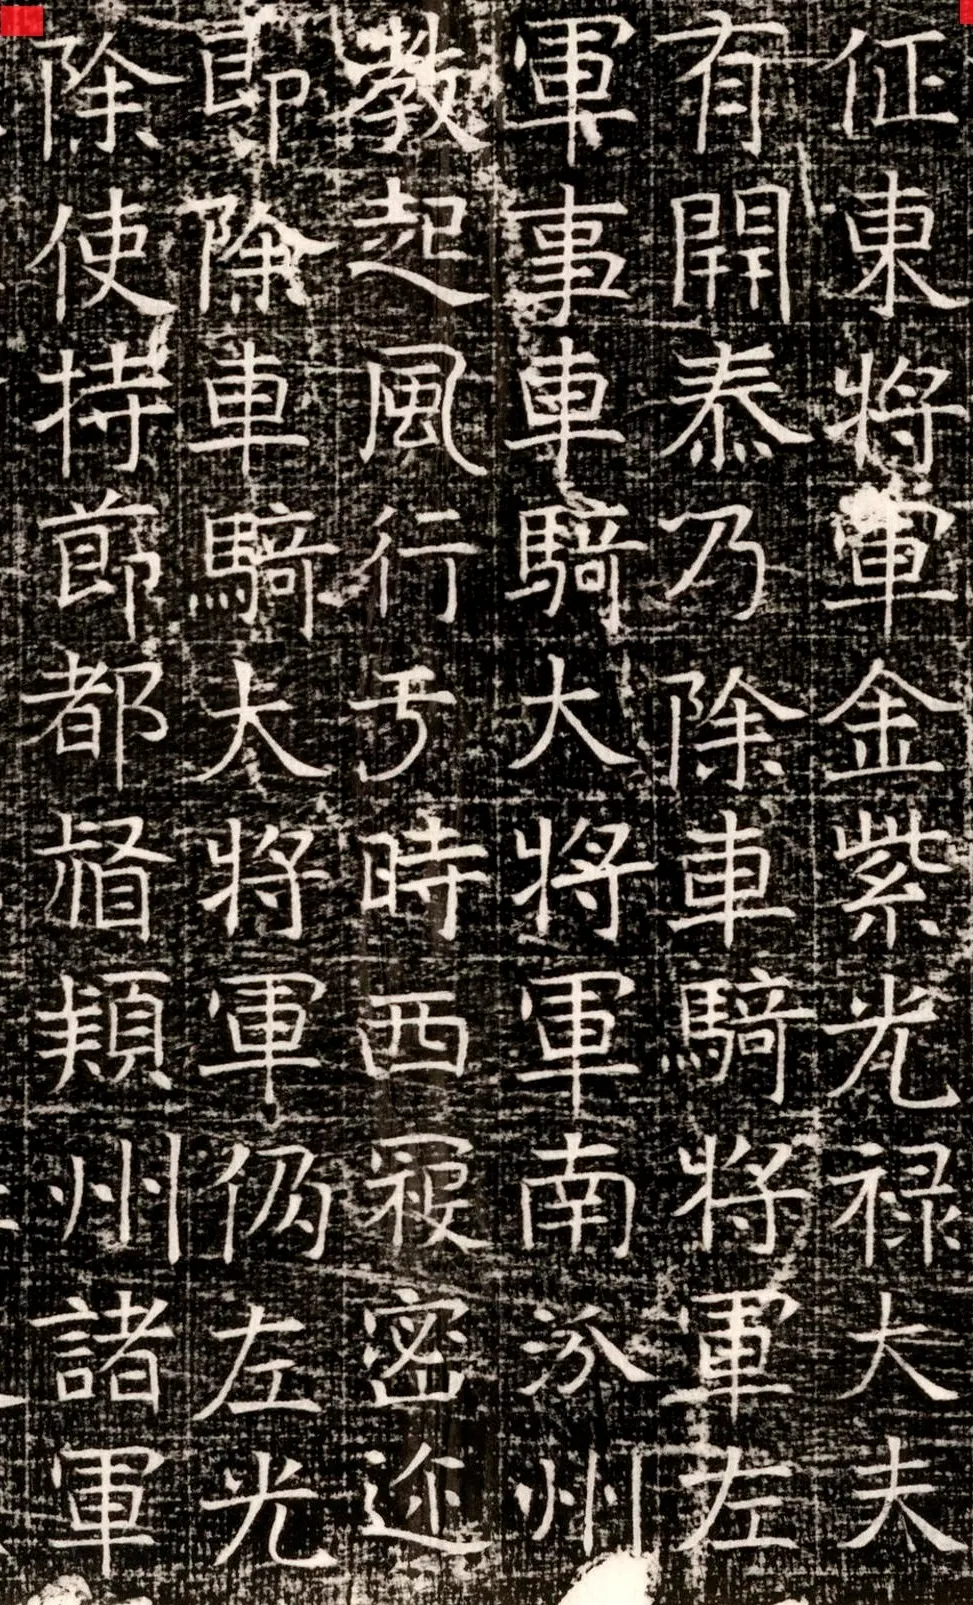 征東將軍金紫光禄大夫
有開泰乃除車騎將軍左
軍事車騎大將軍南汾州
教起風行于時西寇密迩
即除車騎大將軍仍左光
除使持節都督潁州諸軍